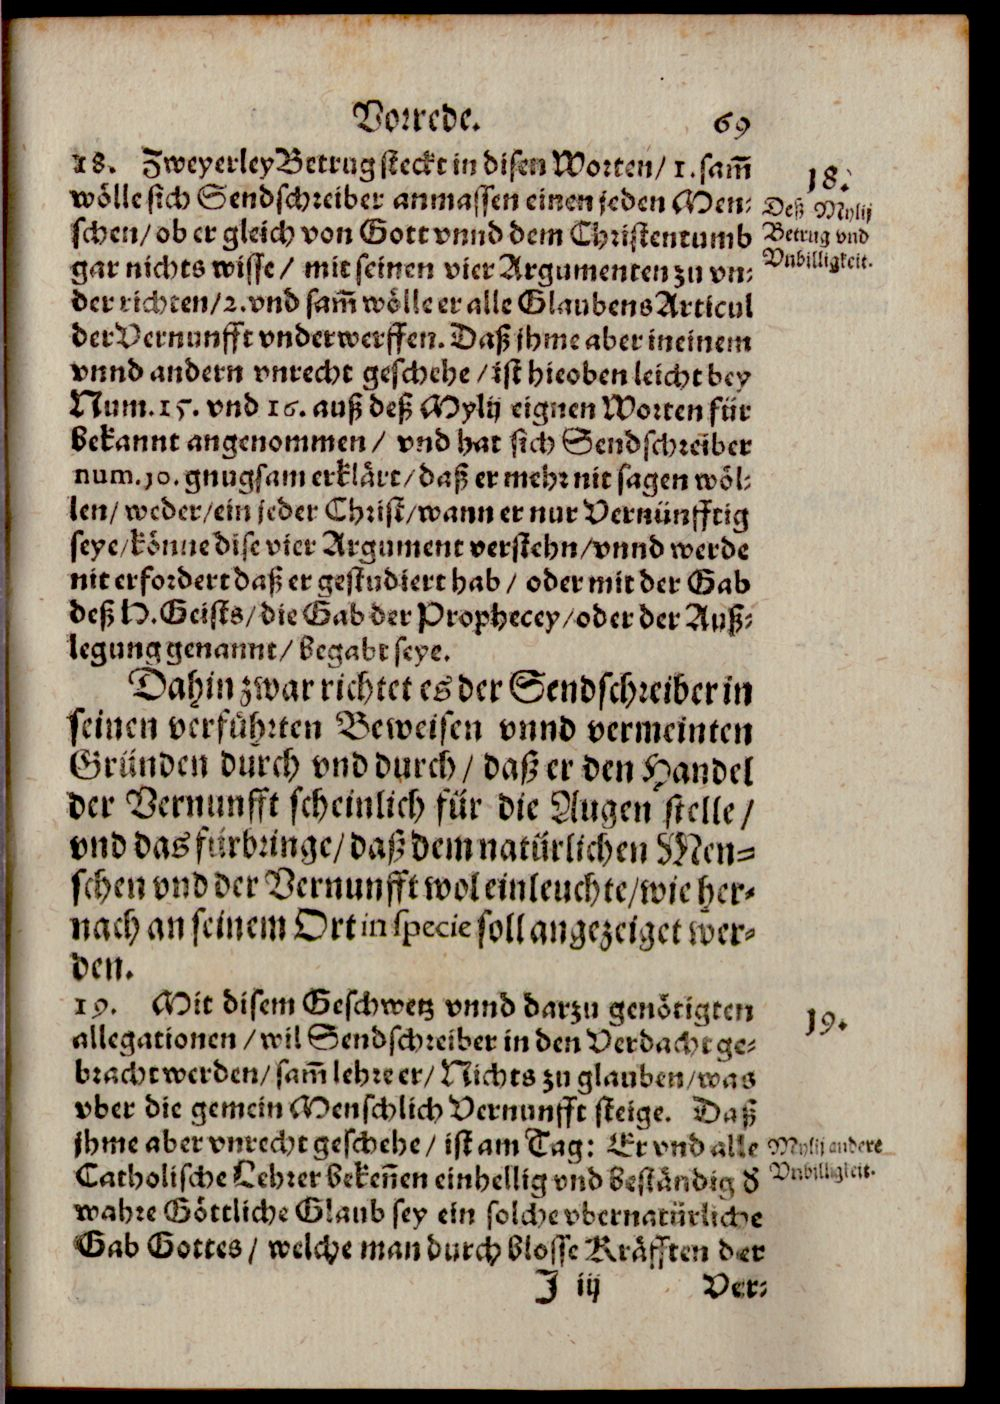 Vorrede. 69
18. Zweyerley Betrug steckt in disen Worten/ 1. sam̃
wölle sich Sendschreiber anmassen einen jeden Men-
schen/ ob er gleich von Gott vnnd dem Christentumb
gar nichts wisse / mit seinen vier Argumenten zu vn-
der richten/2. vnd sam̃ wölle er alle Glaubens Articul
der Vernunfft vnderwerffen. Daß jhme aber in einem
vnnd andern vnrecht geschehe / ist hieoben leicht bey
Num. 15. vnd 16. auß deß Mylij eignen Worten für
bekannt angenommen / vnd hat sich Sendschreiber
num. 10. gnugsam erklärt/ daß er mehr nit sagen wöl-
len/ weder/ ein jeder Christ/ wann er nur Vernünfftig
seye/ könne dise vier Argument verstehn/ vnnd werde
nit erfordert daß er gestudiert hab / oder mit der Gab
deß H. Geists/ die Gab der Prophecey/ oder der Auß-
legung genannt/ begabt seye.
18.
Deß Mylij
Betrug vnd
Vnbilligkeit.
Dahin zwar richtet es der Sendschreiber in
seinen verführten Beweisen vnnd vermeinten
Gründen durch vnd durch / daß er den Handel
der Vernunfft scheinlich für die Augen stelle /
vnd das fürbringe/ daß dem natürlichen Men-
schen vnd der Vernunfft wol einleuchte/ wie her-
nach an seinem Ort in specie soll angezeiget wer-
den.
19. Mit disem Geschwetz vnnd darzu genötigten
allegationen / wil Sendschreiber in den Verdacht ge-
bracht werden/ sam̃ lehre er/ Nichts zu glauben/ was
vber die gemein Menschlich Vernunfft steige. Daß
jhme aber vnrecht geschehe / ist am Tag: Er vnd alle
Catholische Lehrer beken̄en einhellig vnd beständig d̕
wahre Göttliche Glaub sey ein solche vbernatürliche
Gab Gottes / welche man durch blosse Kräfften der
19.
Mylij andere
Vnbilligkeit.
J iij Ver-